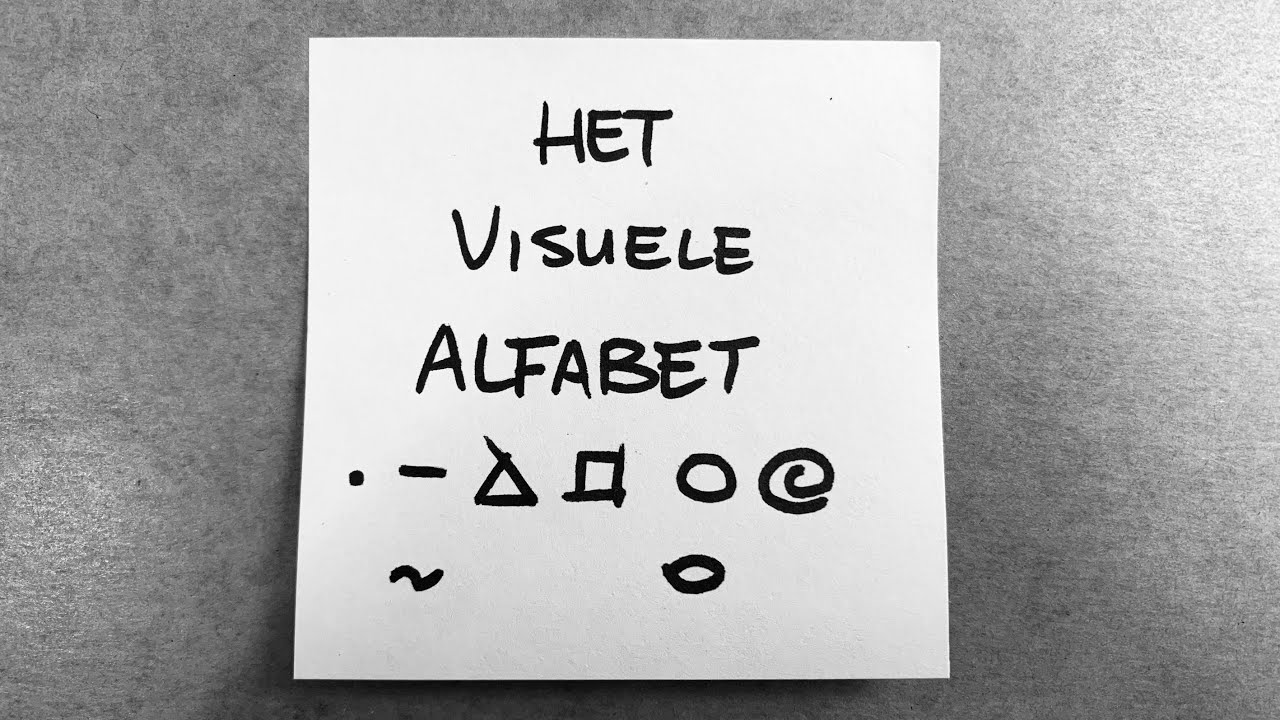 HET
VISUELE
ALFABET